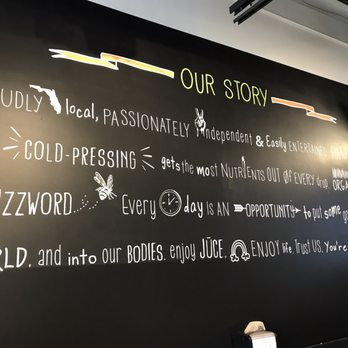 OUR STORY
local, PASSIONATELY independent & Easily ENTERTAINED.
COLD-PRESSING gets the most NUTRIENTS OUT OF EVERY drop.
Every day is AN OPPORTUNITY to put some
and into our BODIES. enjoy JŪCE. ENJOY life. Trust US. You're